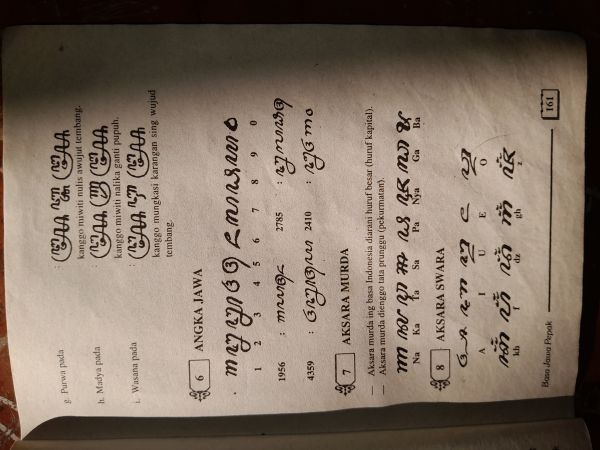 g. Purwa pada :
kanggo miwiti nulis awujut tembang.
h. Madya pada :
kanggo miwiti nalika ganti pupuh.
i. Wasana pada :
kanggo mungkasi karangan sing wujud
tembang.
6 ANGKA JAWA
꧑ ꧒ ꧓ ꧔ ꧕ ꧖ ꧗ ꧘ ꧙ ꧐
1 2 3 4 5 6 7 8 9 0
1956 : ꧑꧙꧕꧖ 2785 : ꧒꧗꧘꧕
4359 : ꧔꧓꧕꧙ 2410 : ꧒꧔꧑꧐
7 AKSARA MURDA
— Aksara murda ing basa Indonesia diarani huruf besar (huruf kapital).
— Aksara murda dienggo tata prunggu (pekurmatan).
ꦟ ꦑ ꦡ ꦯ ꦦ ꦘ ꦓ ꦨ
Na Ka Ta Sa Pa Nya Ga Ba
8 AKSARA SWARA
ꦄ ꦆ ꦈ ꦌ ꦎ
A I U E O
ꦏ꦳ ꦥ꦳ ꦢ꦳ ꦒ꦳ ꦗ꦳
kh f dz gh z
Baso Jawa Pepak
161